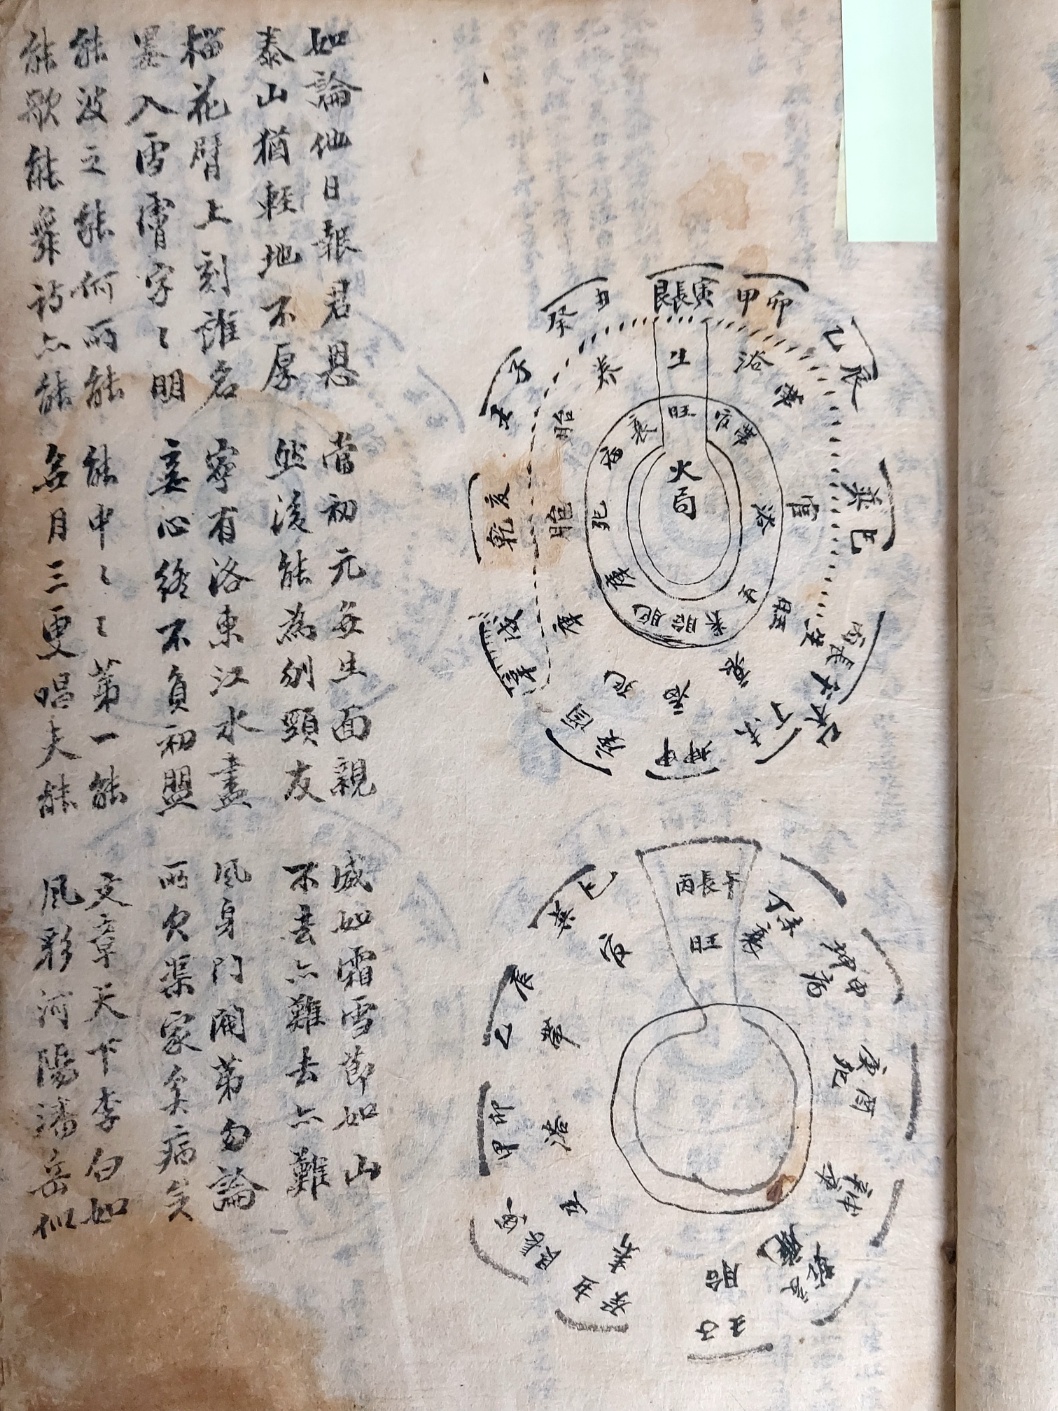 艮長寅
甲卯
乙辰
巽巳
丙長午
丁未
坤申
庚酉
辛戌
乾亥
壬子
癸丑
生
浴
帶
官
旺
衰
病
死
庫
胞
胎
養
旺
官帶
浴
生
養胎胞
庫
死
病
衰
火局
丙長午
旺
丁未
衰
坤申
病
庚酉
死
辛戌
乾亥
胎
壬子
癸丑
養
艮長寅
生
甲卯
浴
乙辰
帶
巽巳
官
如論他日報君恩 當初元每生面親 威如霜雪節如山
泰山猶輕地不厚 然後能為刎頸友 不去亦難去亦難
榴花臂上刻誰名 寧有洛東江水盡 風身門閥第勿論
墨入雪膚字〻明 妾心終不負初盟 兩欠渠家矣病矣
能波之能何所能 能中〻〻第一能 文章天下李白如
能歌能舞詩亦能 無月三更唱夫能 風彩河陽潘岳似